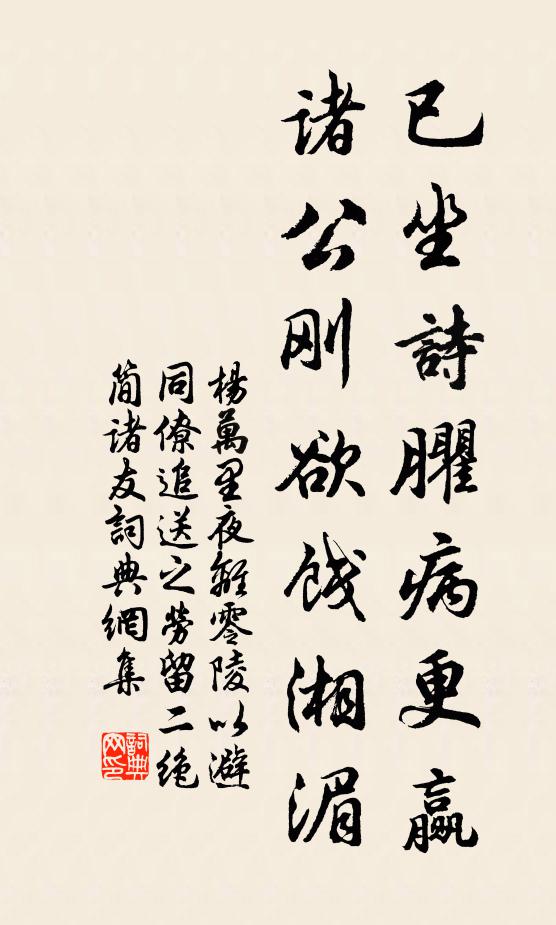 已坐詩臞病更羸
诸公刚欲饯湘湄
楊萬里夜離零陵以避
同僚追送之勞留二绝
简诸友詞典網集
詞典网印